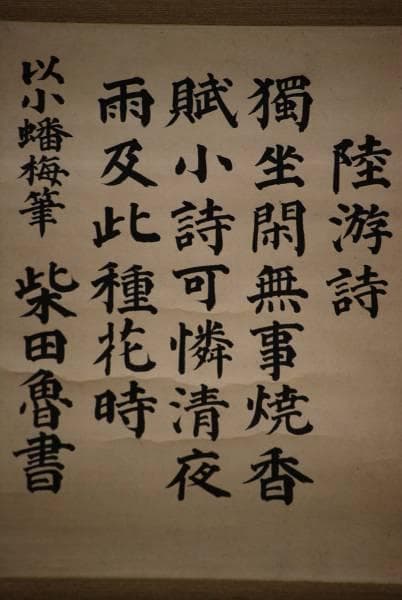 陸游詩
獨坐閑無事燒香
賦小詩可憐清夜
雨及此種花時
以小蟠梅筆 柴田魯書